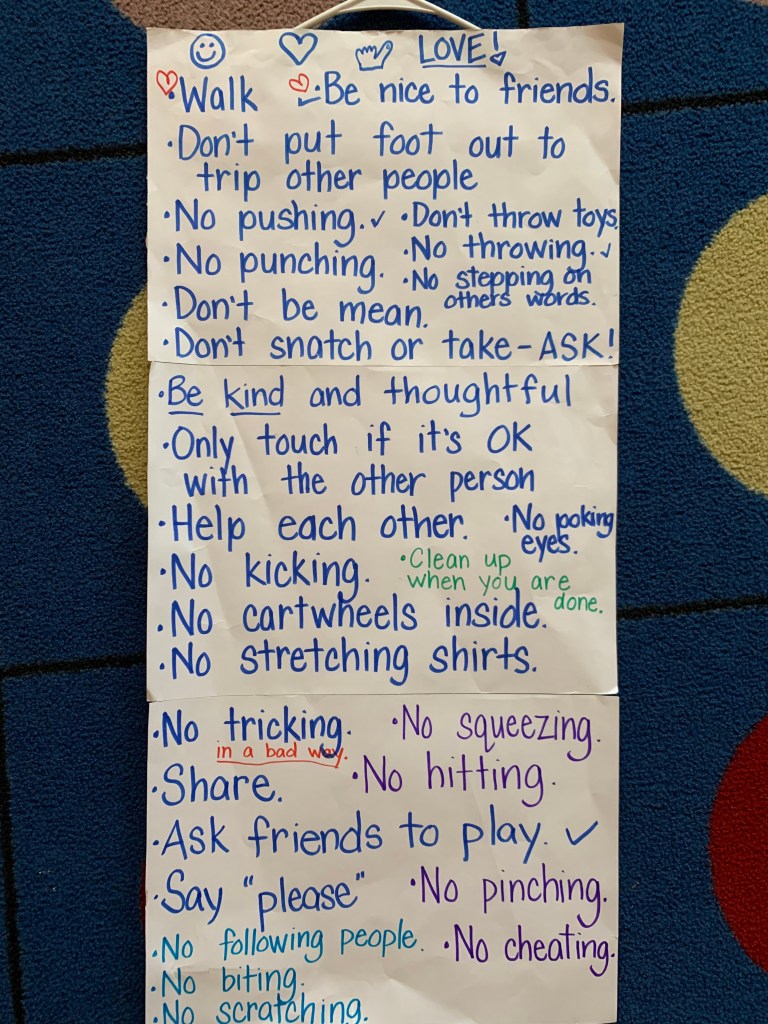 LOVE!
•Walk •Be nice to friends.
•Don't put foot out to
trip other people
•No pushing. ✓ •Don't throw toys.
•No throwing. ✓
•No punching.
•No stepping on
others words.
•Don't be mean.
•Don't snatch or take - ASK!
•Be kind and thoughtful
•Only touch if it's OK
with the other person
•Help each other. •No poking
eyes.
•No kicking. •Clean up
when you are
done.
•No cartwheels inside.
•No stretching shirts.
•No tricking. •No squeezing.
in a bad way.
•Share. •No hitting.
•Ask friends to play. ✓
•Say "please" •No pinching.
•No following people. •No cheating.
•No biting.
•No scratching.